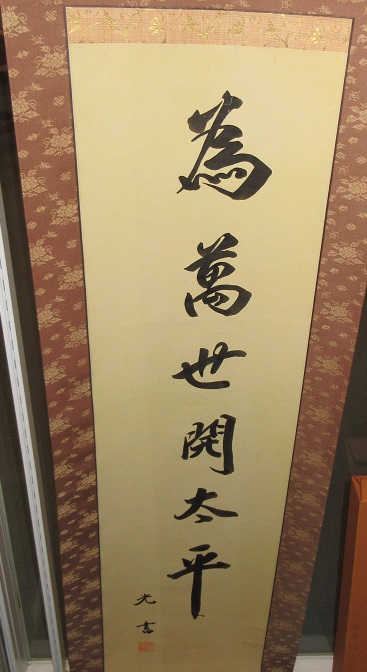 為萬世開太平
光書